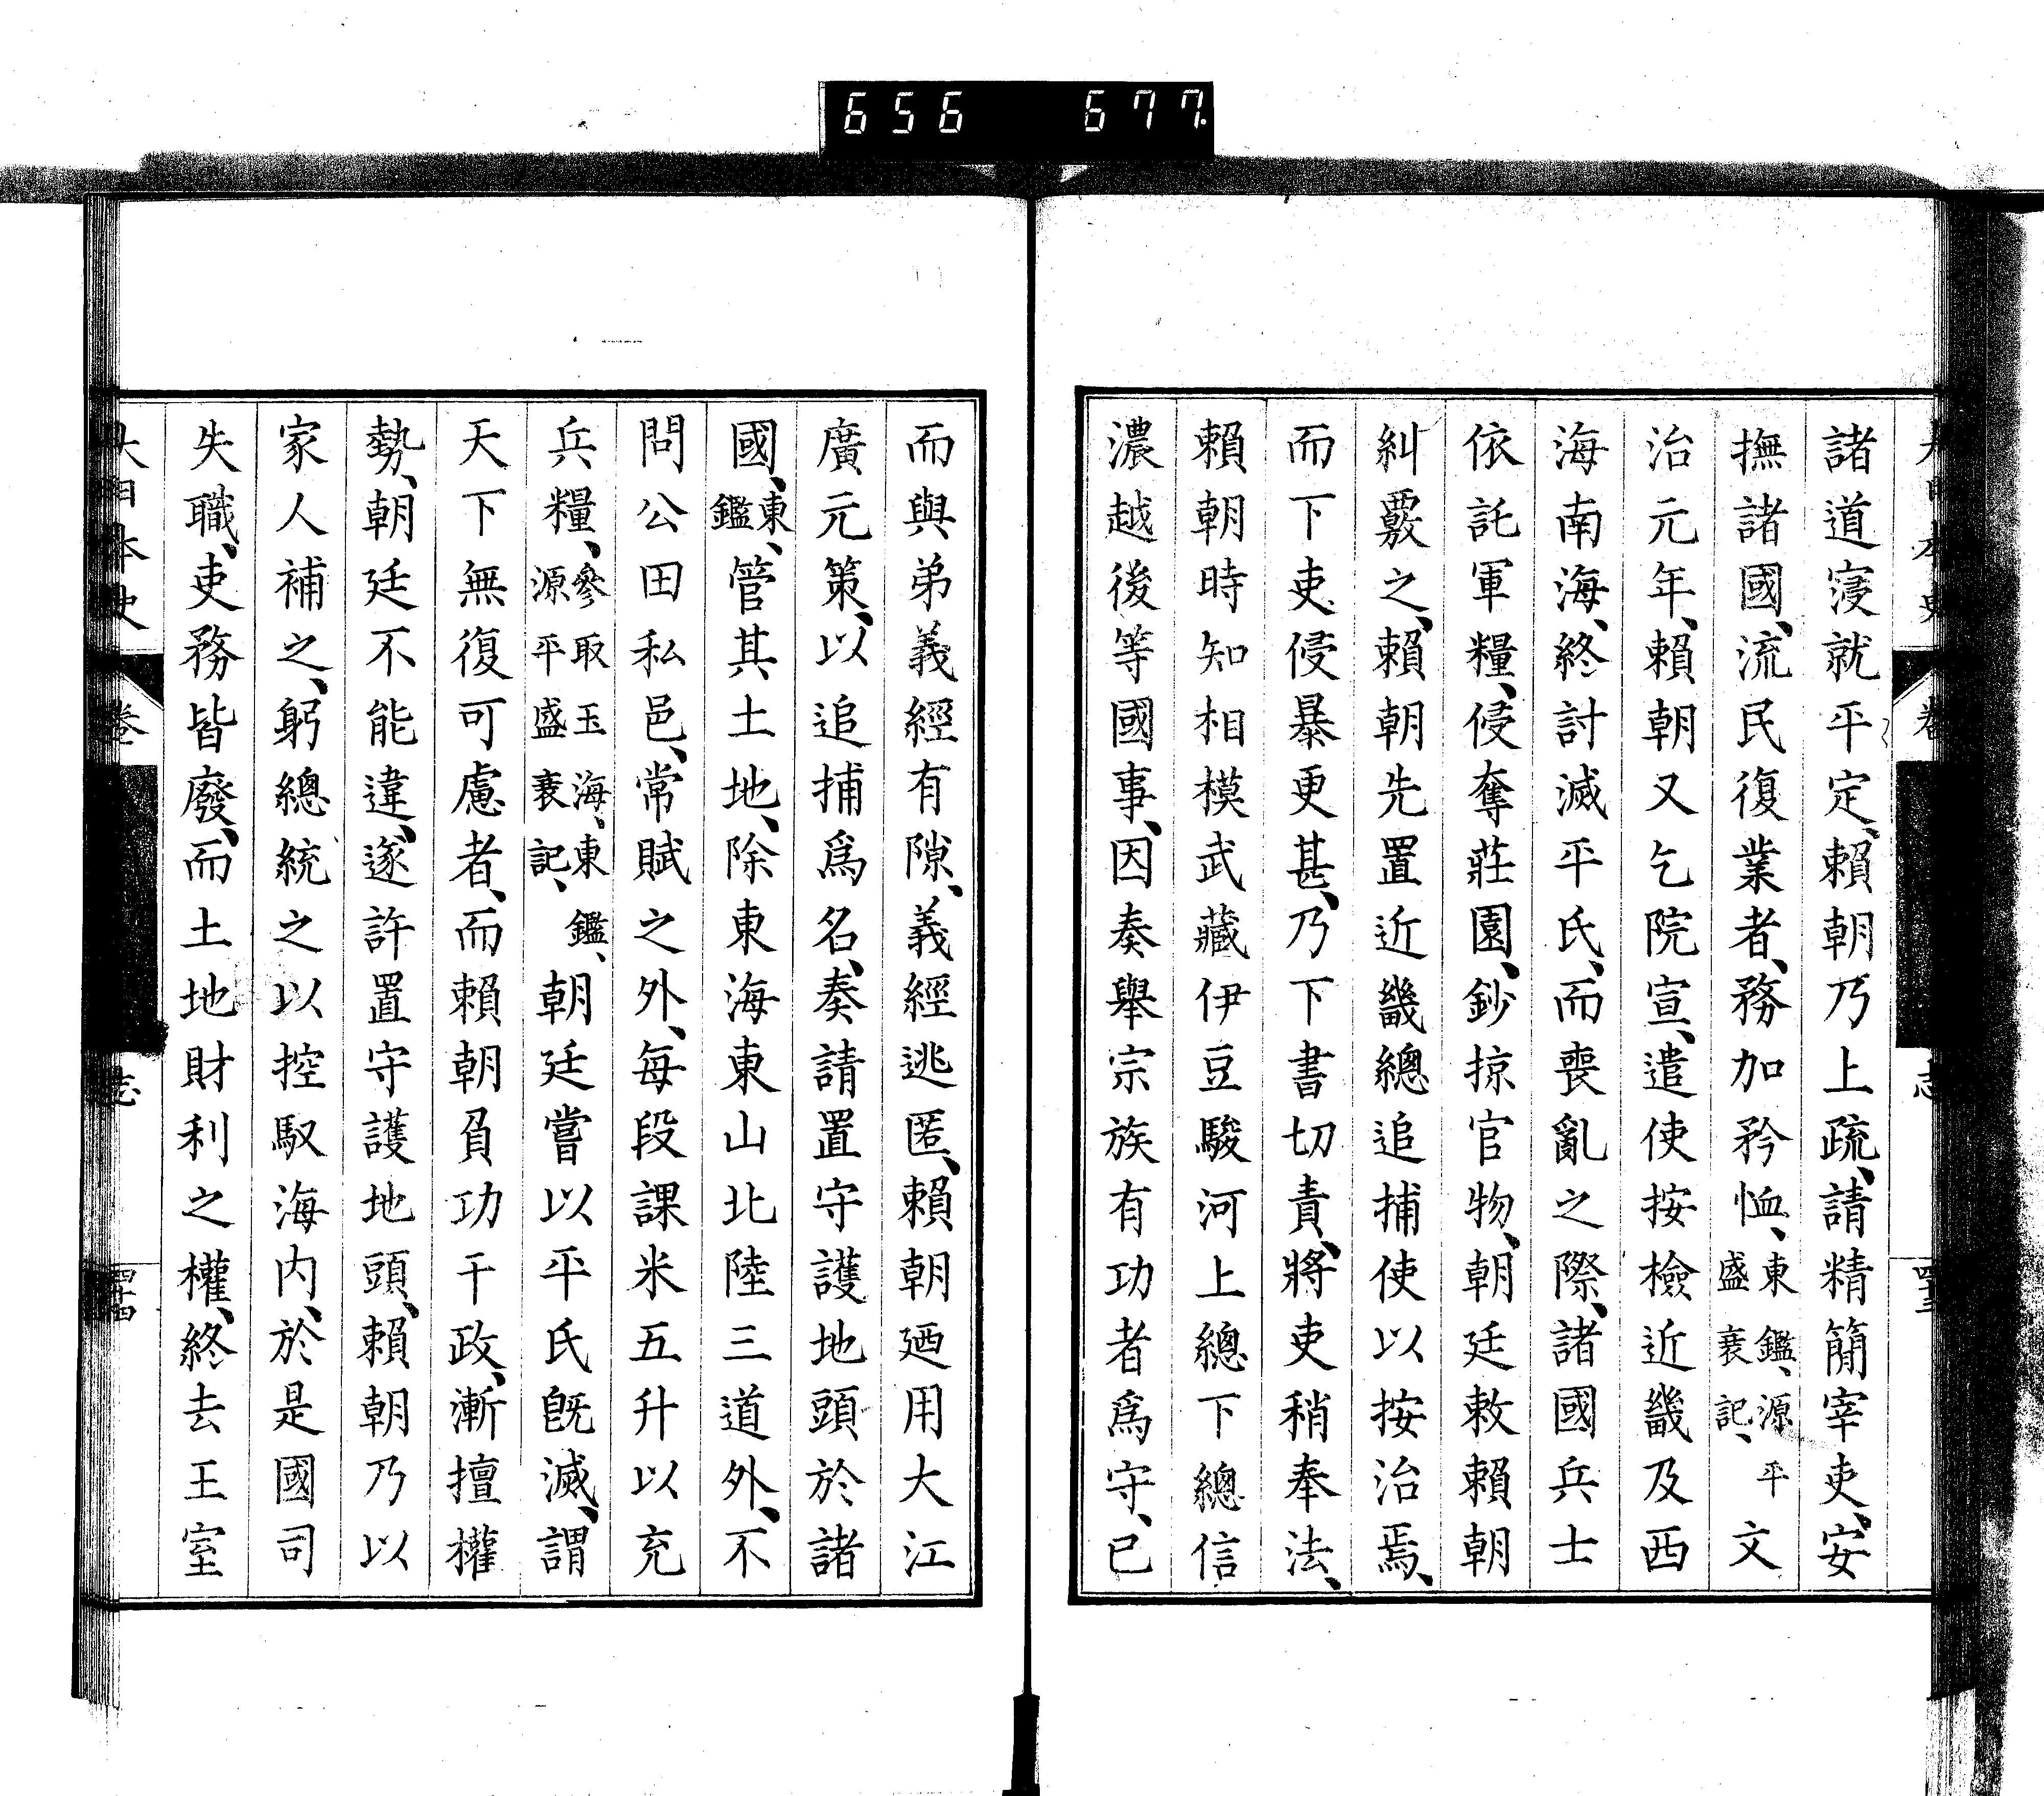 656 677.
諸道寖就平定、賴朝乃上疏、請精簡宰吏、安
撫諸國、流民復業者、務加矜恤、東鑑、源平盛衰記、文
治元年、賴朝又乞院宣、遣使按檢近畿及西
海南海、終討滅平氏、而喪亂之際、諸國兵士
依託軍糧、侵奪莊園、鈔掠官物、朝廷敕賴朝
糾覈之、賴朝先置近畿總追捕使以按治焉、
而下吏侵暴更甚、乃下書切責、將吏稍奉法、
賴朝時知相模武藏伊豆駿河上總下總信
濃越後等國事、因奏舉宗族有功者爲守、已
而與弟義經有隙、義經逃匿、賴朝廼用大江
廣元策、以追捕爲名、奏請置守護地頭於諸
國、東鑑、管其土地、除東海東山北陸三道外、不
問公田私邑、常賦之外、每段課米五升以充
兵糧、參取玉海、東鑑、源平盛衰記、朝廷嘗以平氏旣滅、謂
天下無復可慮者、而賴朝負功干政、漸擅權
勢、朝廷不能違、遂許置守護地頭、賴朝乃以
家人補之、躬總統之以控馭海內、於是國司
失職、吏務皆廢、而土地財利之權、終去王室
大日本史 卷 志 四十四